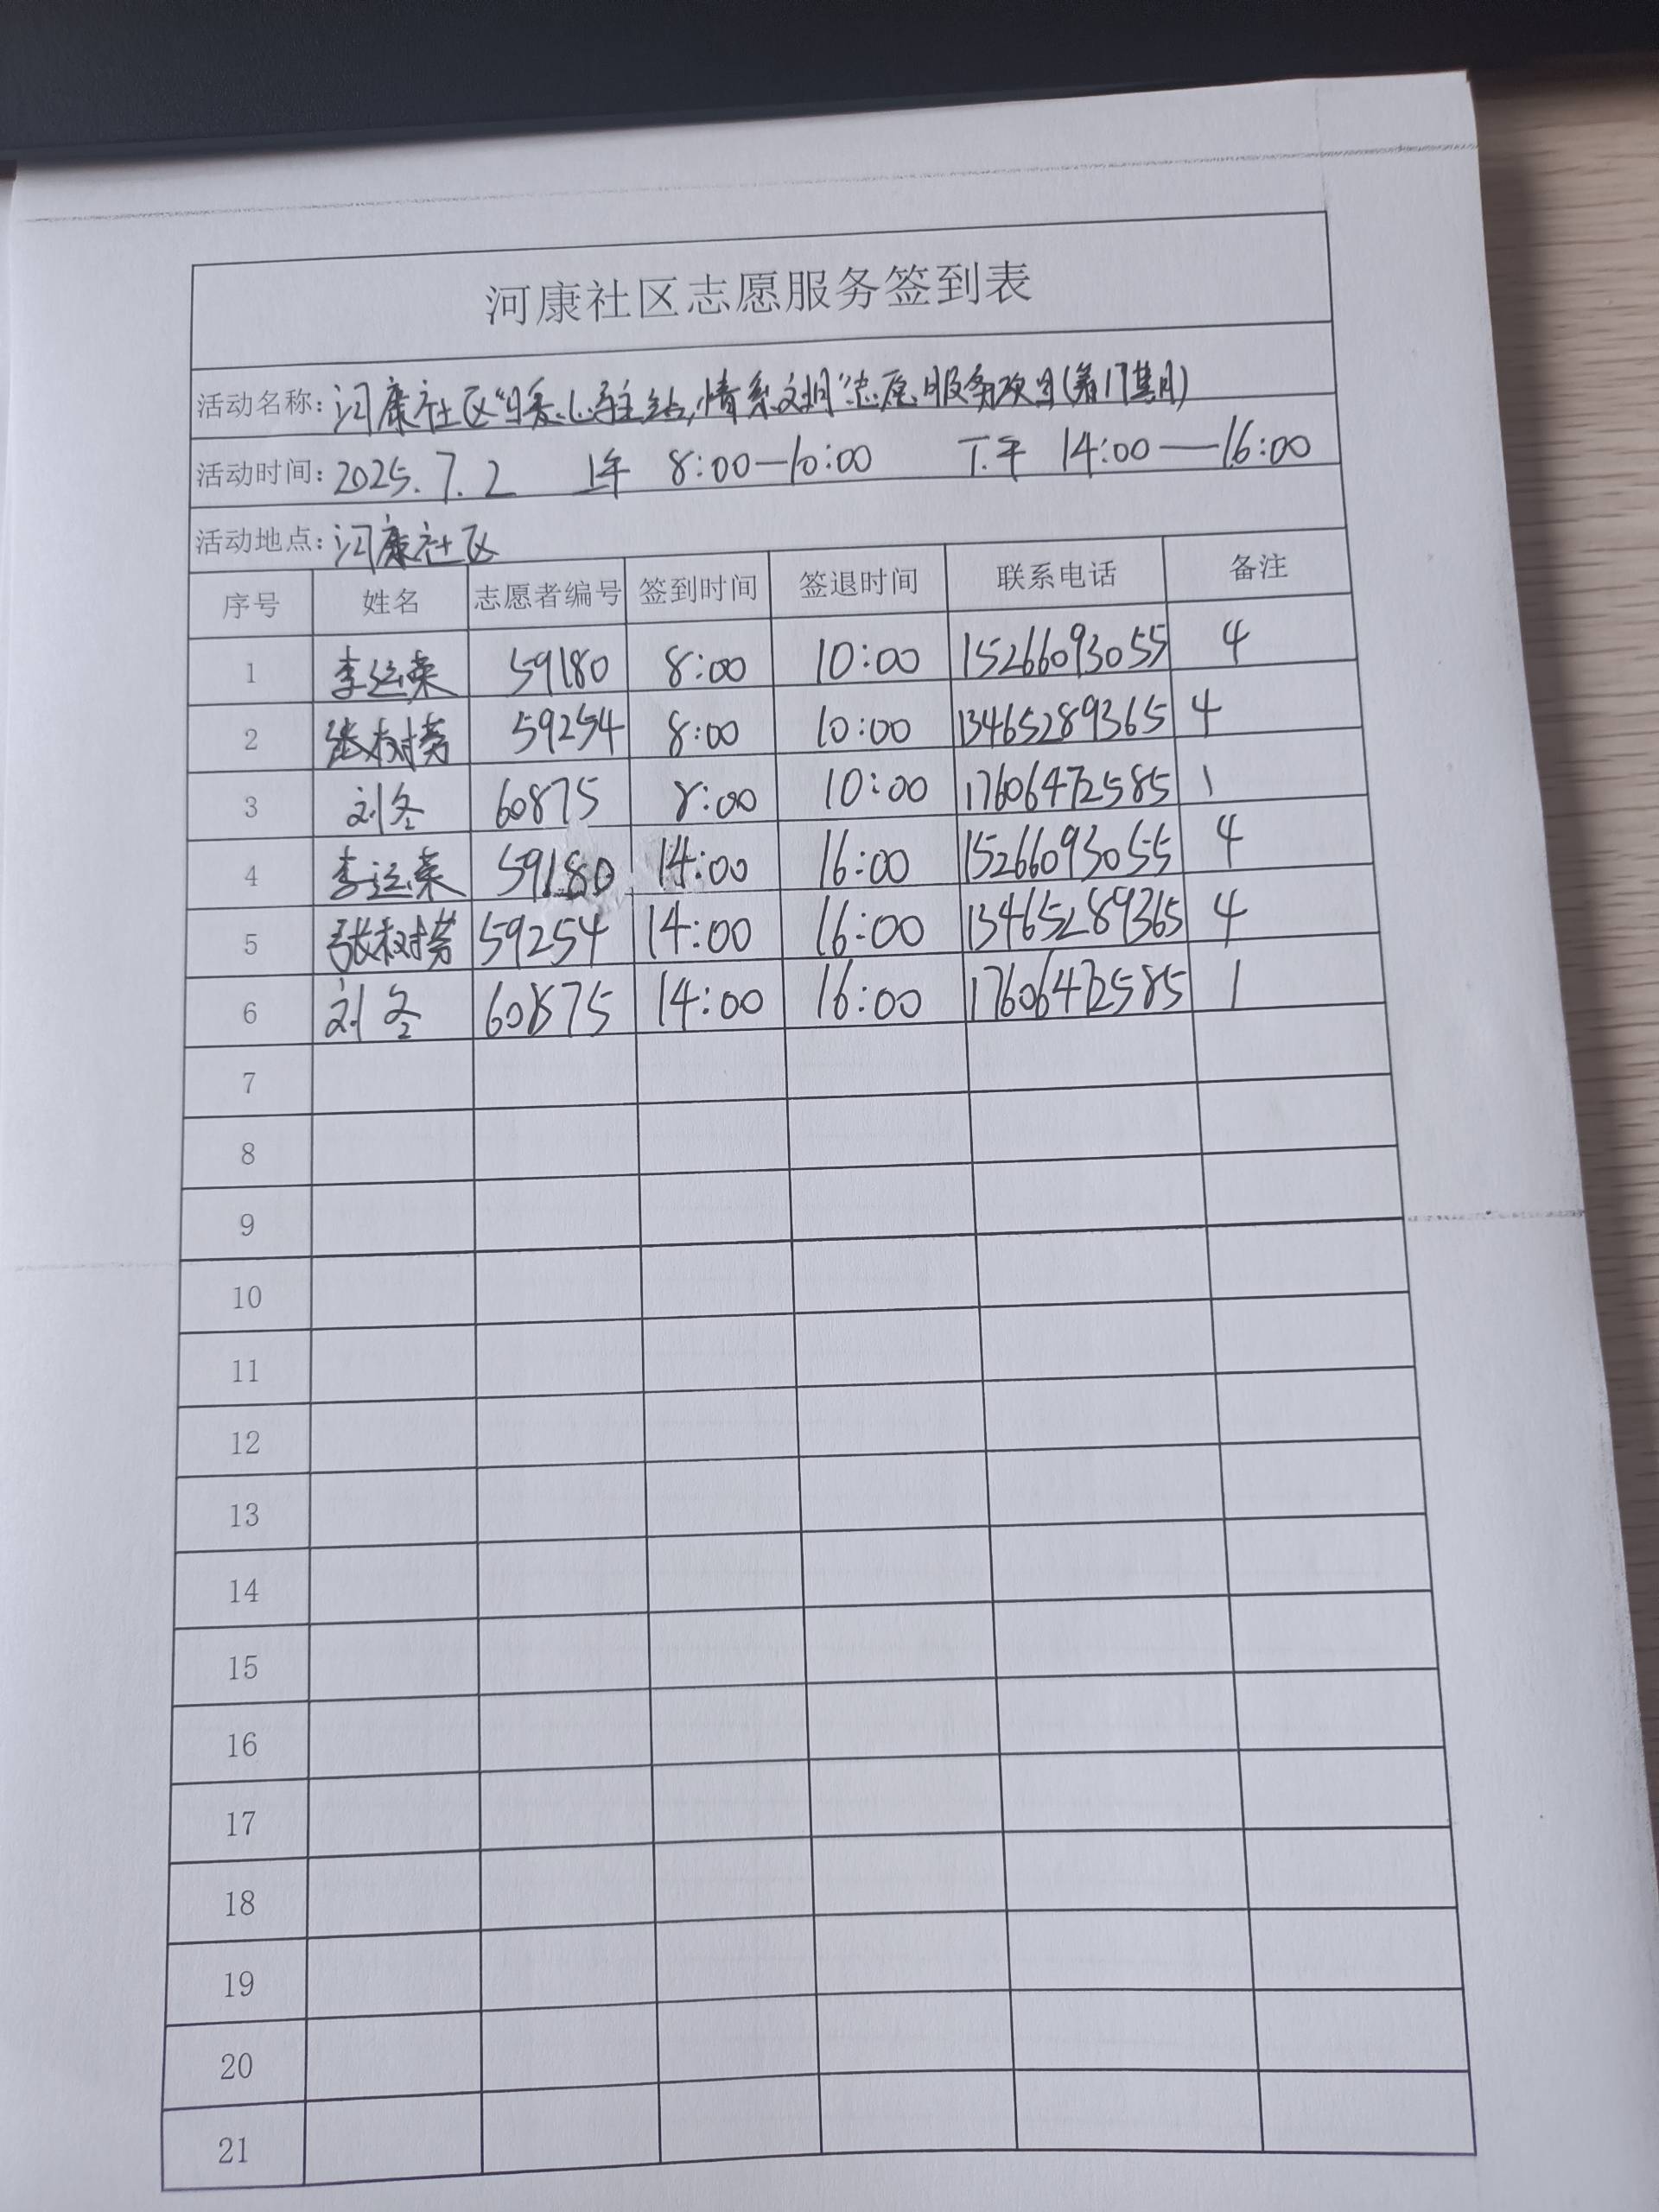 河康社区志愿服务签到表
活动名称: 河康社区"暖心驿站,情系文明"志愿服务项目(第17期)
活动时间: 2025.7.2 上午 8:00—10:00 下午 14:00—16:00
活动地点: 河康社区
序号 姓名 志愿者编号 签到时间 签退时间 联系电话 备注
1 李运荣 59180 8:00 10:00 15266093055 4
2 张树 59254 8:00 10:00 13465289365 4
3 刘冬 60875 8:00 10:00 17606472585 1
4 李运荣 59180 14:00 16:00 15266093055 4
5 张树 59254 14:00 16:00 13465289365 4
6 刘冬 60875 14:00 16:00 17606472585 1
7
8
9
10
11
12
13
14
15
16
17
18
19
20
21